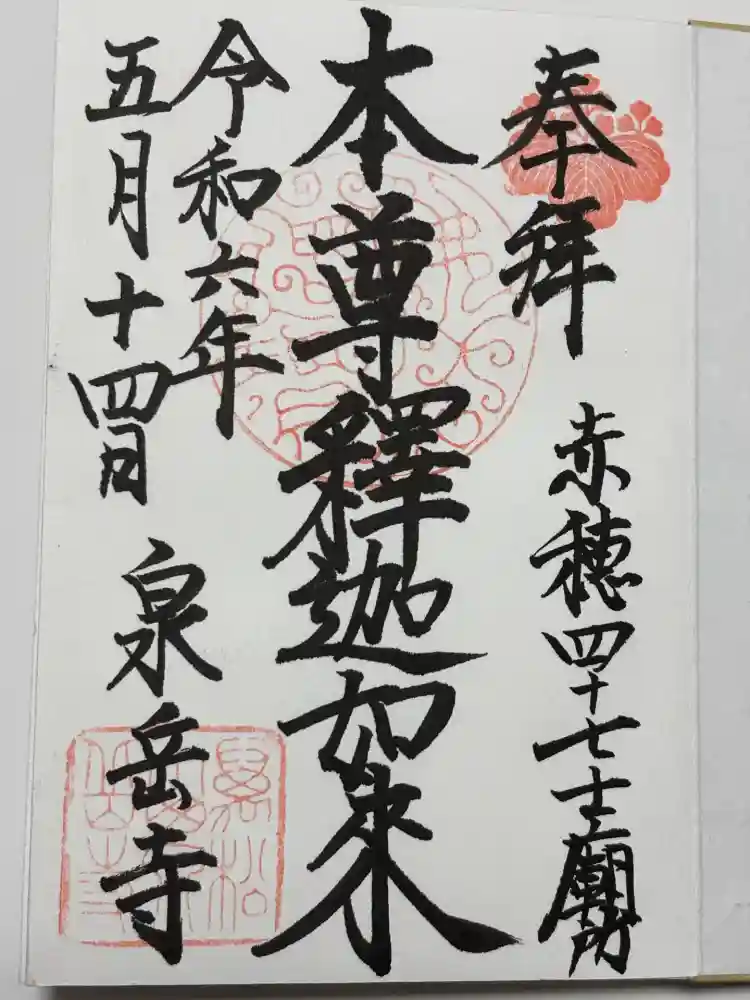 奉拝
赤穂四十七士廟所
本尊釋迦如来
令和六年
五月十四日
泉岳寺